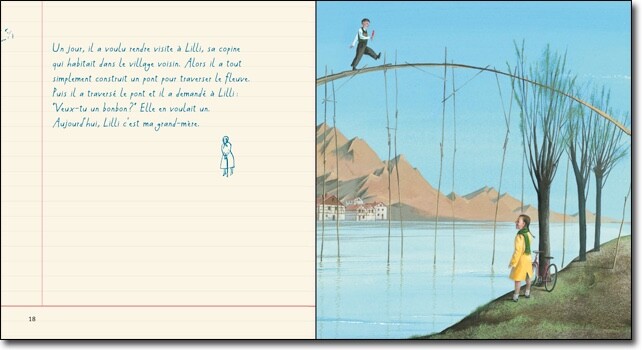 Un jour, il a voulu rendre visite à Lilli, sa copine
qui habitait dans le village voisin. Alors il a tout
simplement construit un pont pour traverser le fleuve.
Puis il a traversé le pont et il a demandé à Lilli :
"Veux-tu un bonbon?" Elle en voulait un.
Aujourd'hui, Lilli c'est ma grand-mère.
18